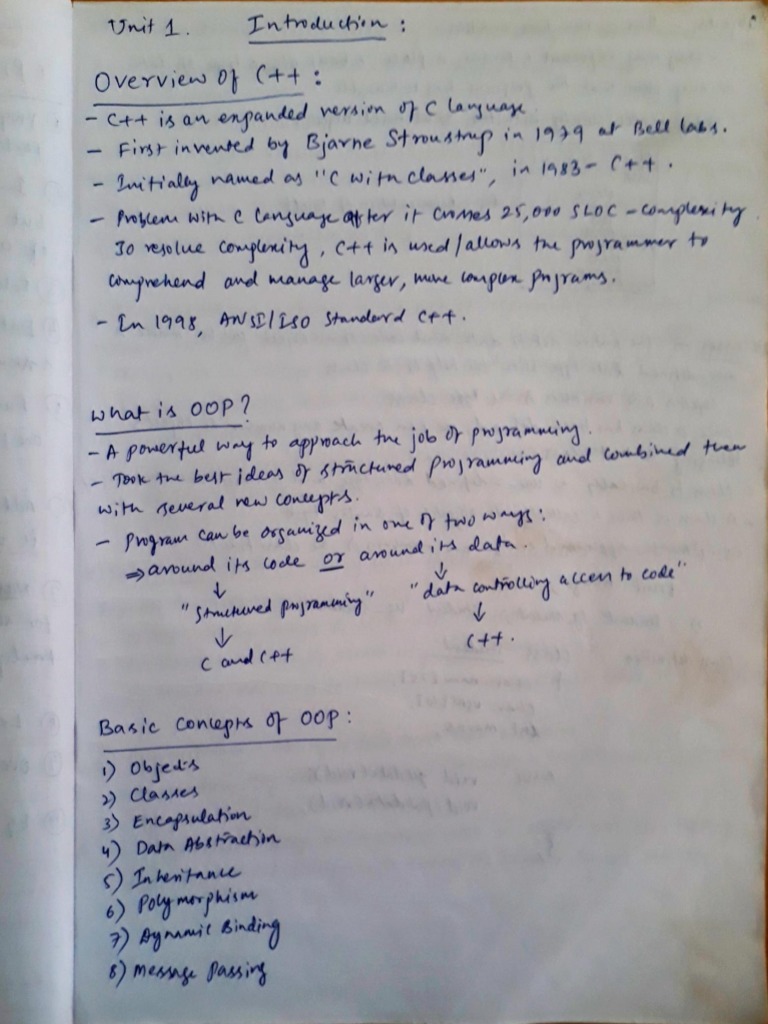 Unit 1. Introduction :
Overview of C++ :
- C++ is an expanded version of C language.
- First invented by Bjarne Stroustrup in 1979 at Bell labs.
- Initially named as "C with classes", in 1983 - C++.
- Problem with C language after it crosses 25,000 SLOC - complexity.
To resolve complexity, C++ is used/allows the programmer to
comprehend and manage larger, more complex programs.
- In 1998, ANSI/ISO Standard C++.
What is OOP?
- A powerful way to approach the job of programming.
- Took the best ideas of structured programming and combined them
with several new concepts.
- Program can be organized in one of two ways:
⇒ around its code or around its data.
↓ ↓
"Structured programming" "data controlling access to code"
↓ ↓
C and C++ C++.
Basic Concepts of OOP :
1) Objects
2) Classes
3) Encapsulation
4) Data Abstraction
5) Inheritance
6) Polymorphism
7) Dynamic Binding
8) Message Passing